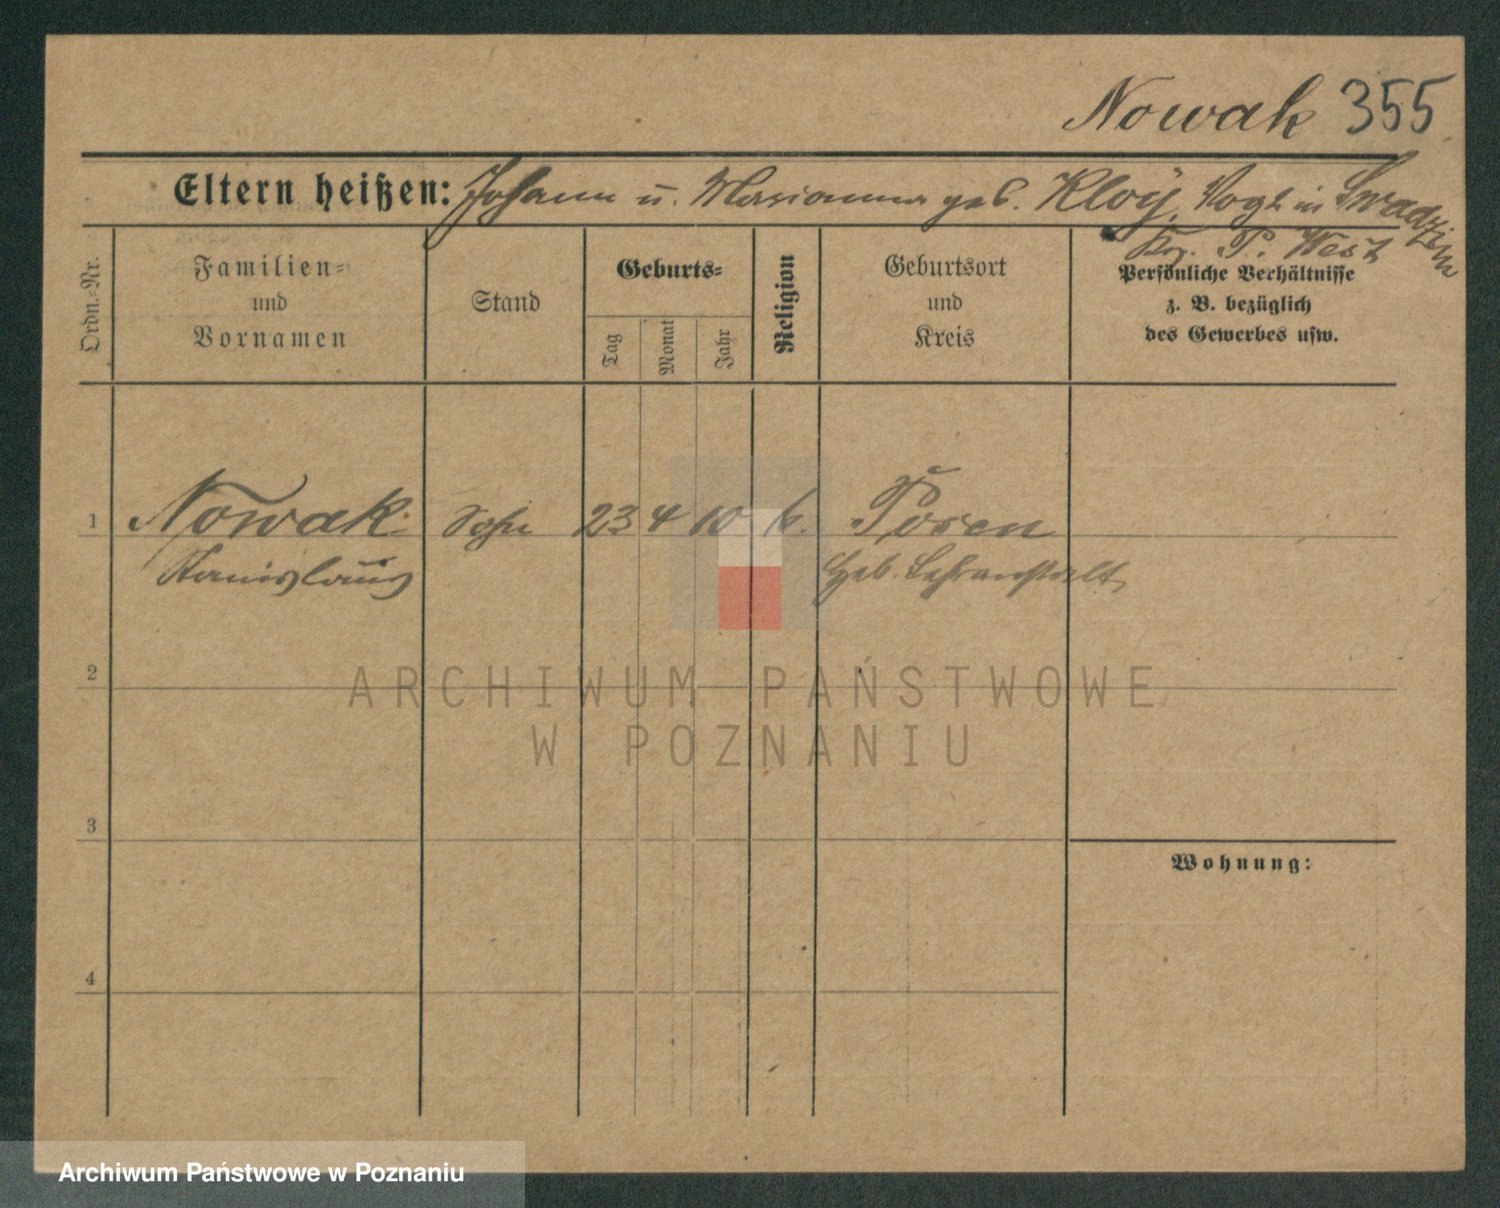 Nowak 355
Eltern heißen: Johann u. Marianna geb. Kloÿ, Vogt in Swadzim
Krs. P. West
Ordn.-Nr.
Familien-
und
Vornamen
Stand
Geburts-
Tag
Monat
Jahr
Religion
Geburtsort
und
Kreis
Persönliche Verhältnisse
z. B. bezüglich
des Gewerbes usw.
1 Nowak Sohn 23 4 10 k. Posen
Stanislaus Heb. Lehranstalt
2
3
4
Wohnung:
ARCHIWUM PAŃSTWOWE
W POZNANIU
Archiwum Państwowe w Poznaniu